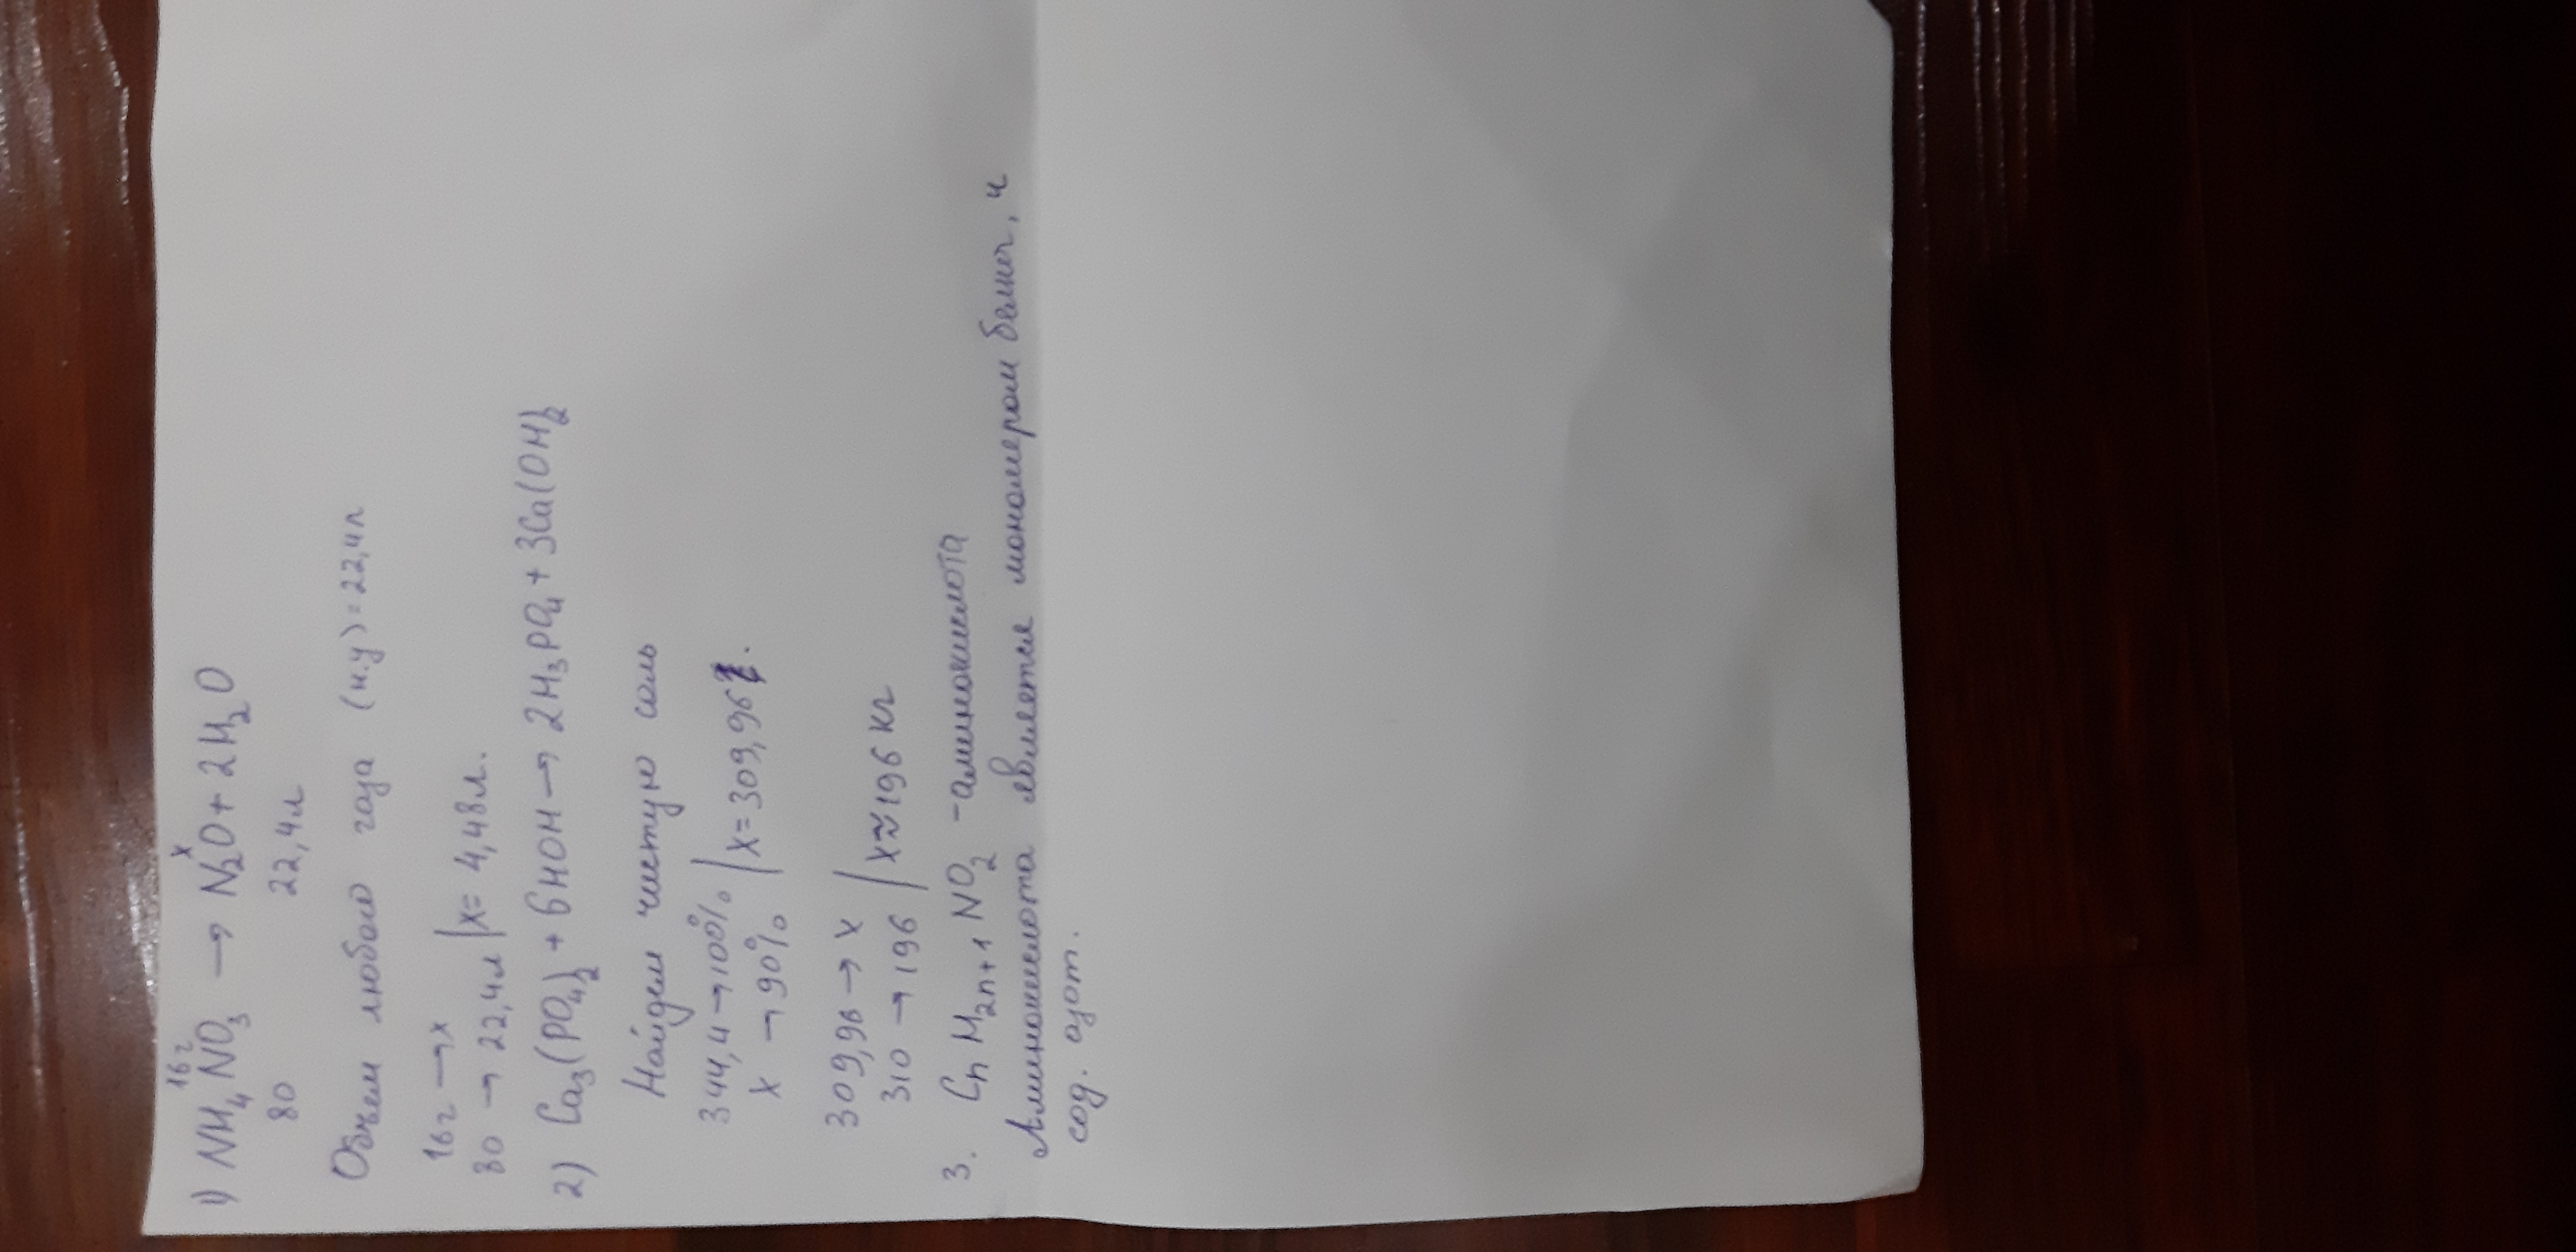 16г х
1) NH4NO3 → N2O + 2H2O
80 22,4л
Объем любого газа (н.у) = 22,4л
16г → х
80 → 22,4л | х = 4,48л.
2) Ca3(PO4)2 + 6HOH → 2H3PO4 + 3Ca(OH)2
Найдем чистую соль
344,4 → 100%
х → 90% | х = 309,96
309,96 → х
310 → 196 | х ≈ 196 кг
3. CnH2n+1NO2 - аминокислота
Аминокислота является мономером белка, и
сод. азот.